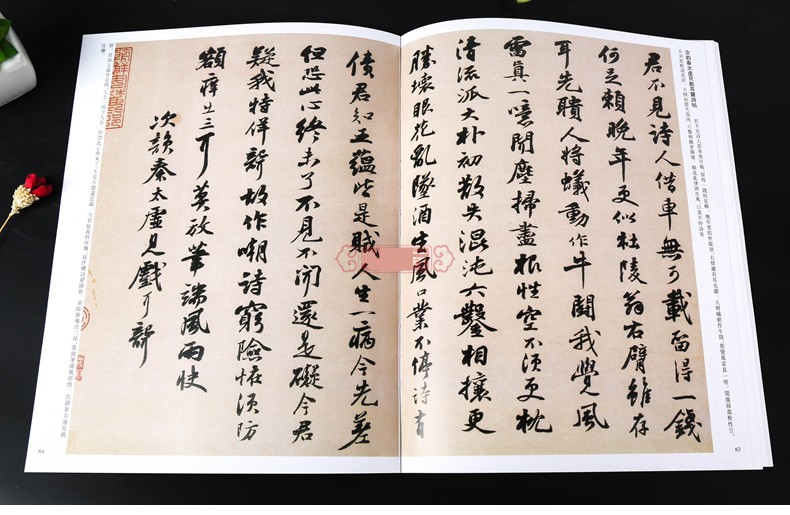 次韵秦太虚见戏耳聋诗帖
63
君不見詩人借車無可載留得一錢
何足賴晚年更似杜陵翁右臂雖存
耳先聵人將蟻動作牛鬭我覺風
雷真一噫聞塵掃盡根性空不須更枕
清流派大朴初散失混沌六鑿相攘更
勝壞眼花亂墜酒生風口業不停詩有
債君知五蘊皆是賊人生一病今先差
但恐此心終未了不見不聞還是礙今君
疑我特佯聾故作嘲詩窮險怪須防
額痒出三耳莫放筆端風雨快
次韻秦太虛見戲耳聾
64